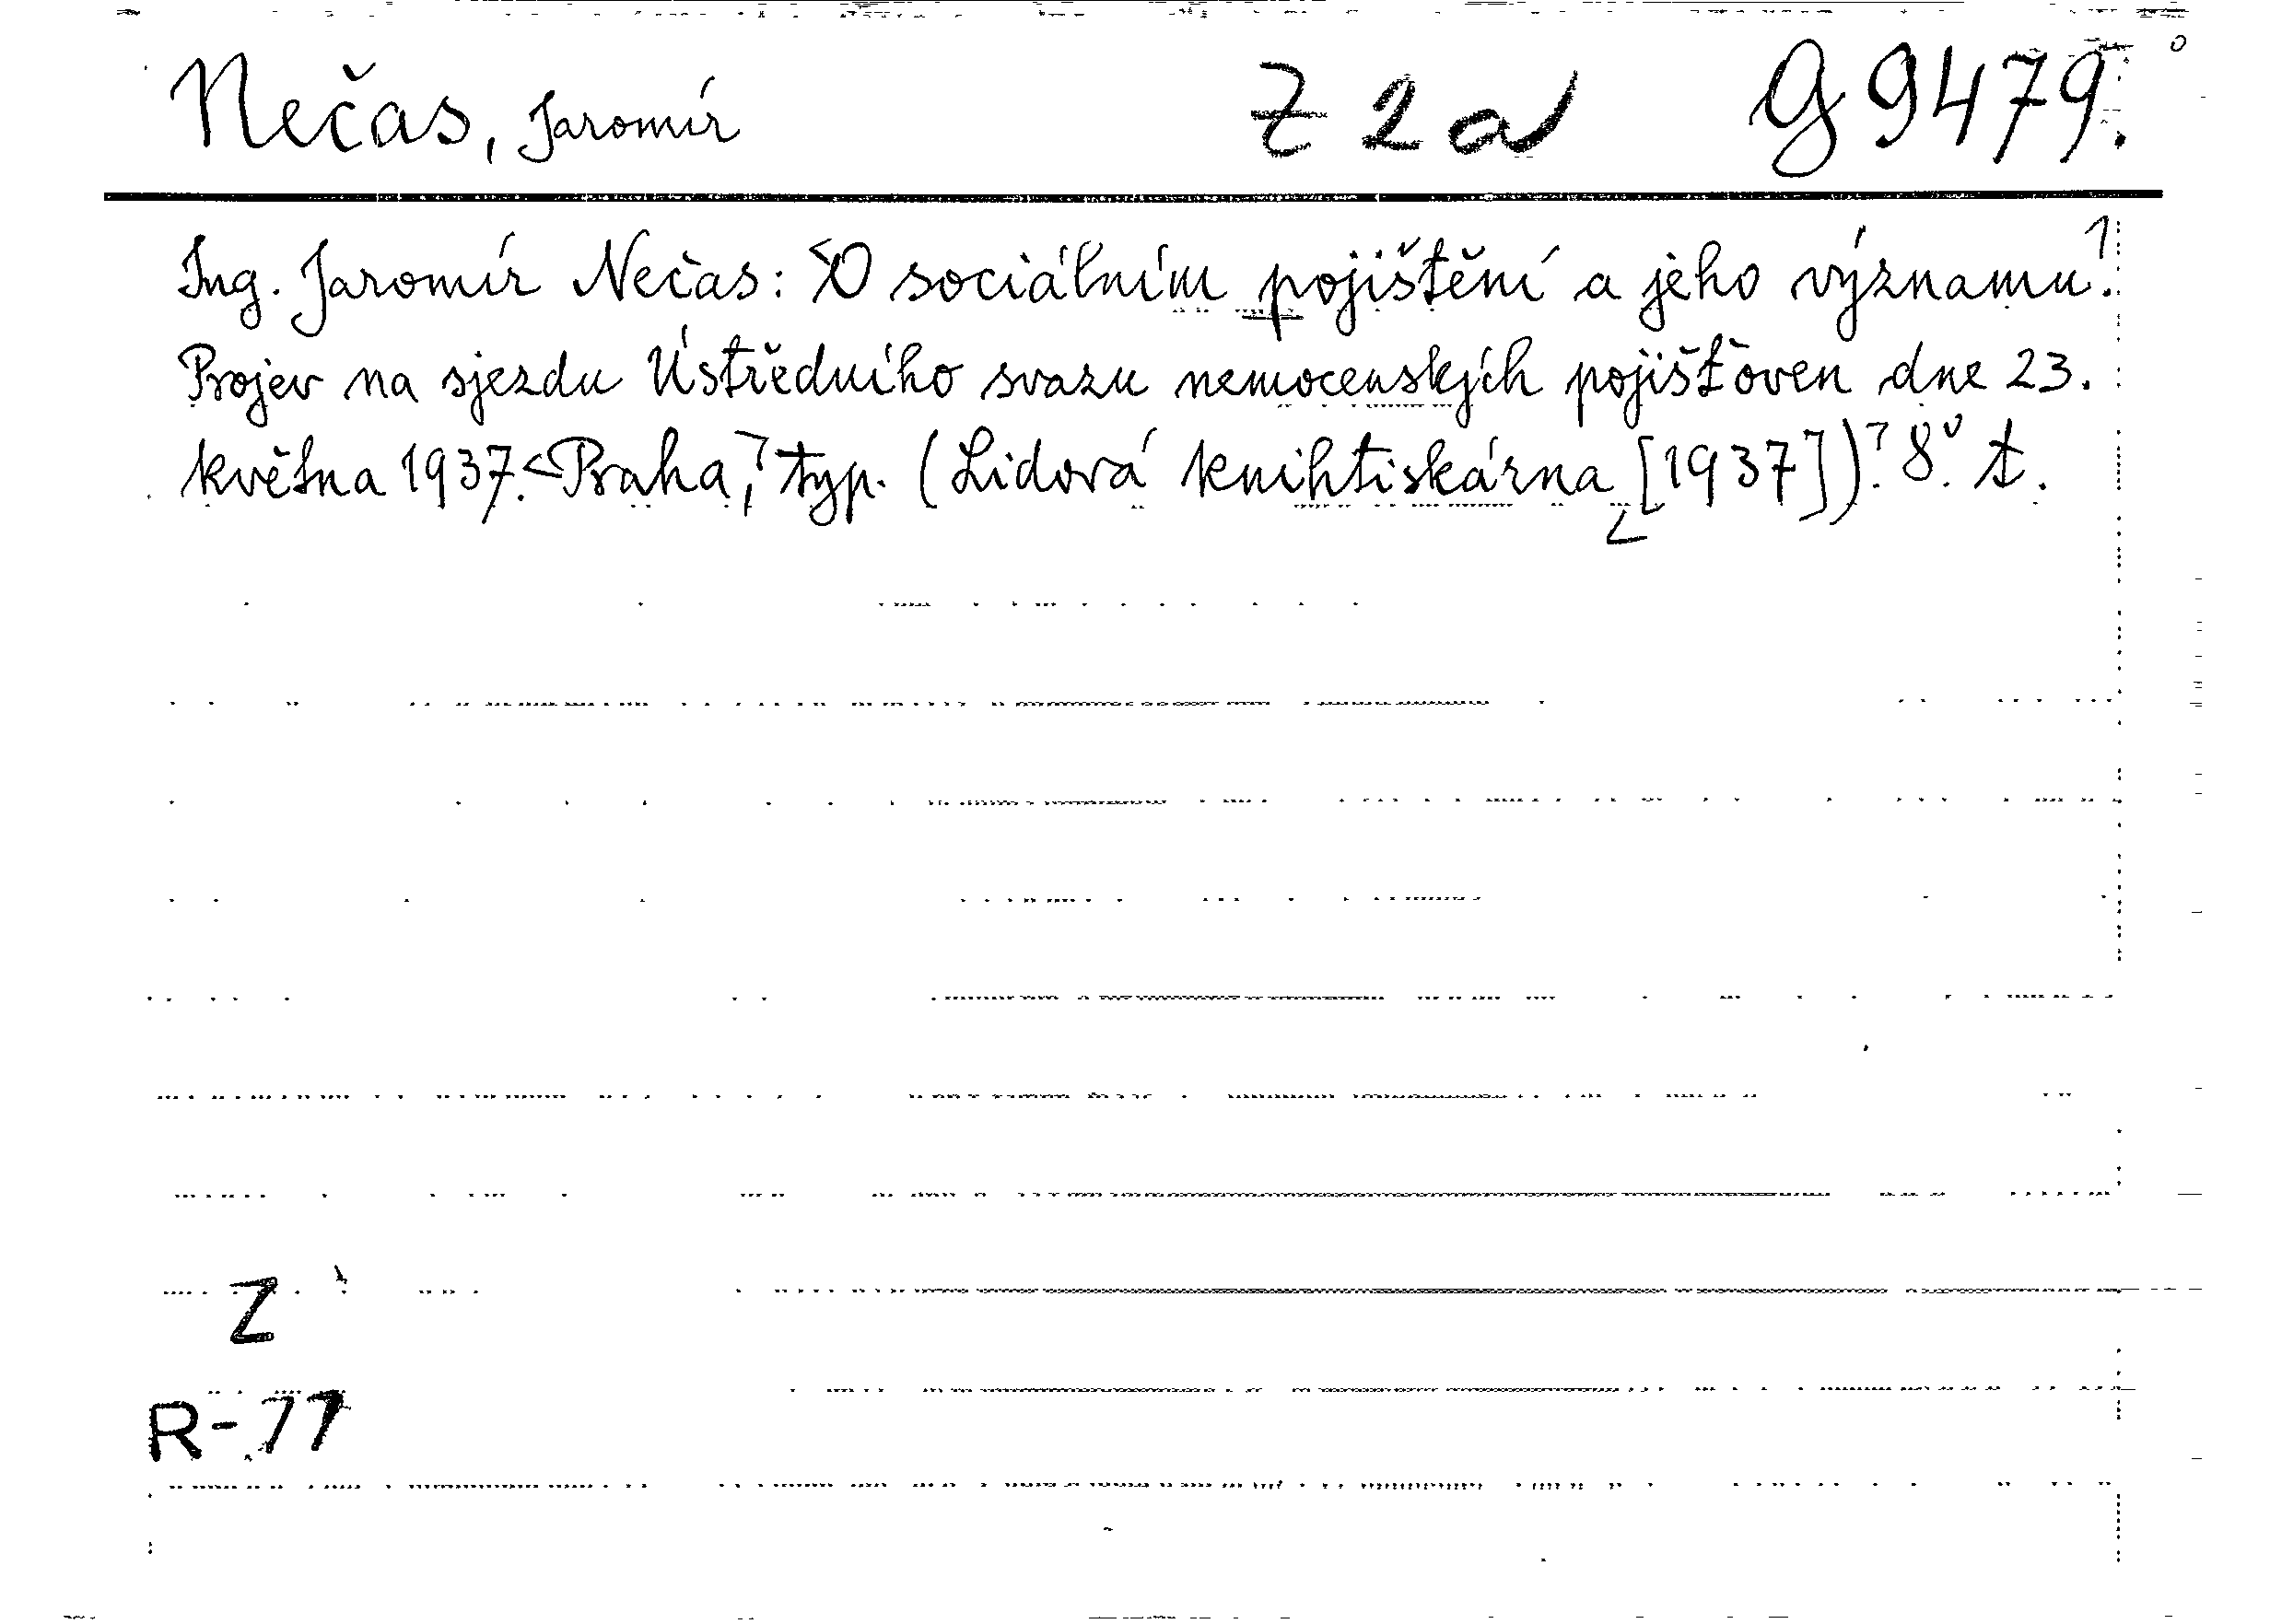 Nečas, Jaromír Z 2a G 9479.
Ing. Jaromír Nečas: O sociálním pojištění a jeho významu.
Projev na sjezdu Ústředního svazu nemocenských pojišťoven dne 23.
května 1937. Praha, typ. (Lidová knihtiskárna [1937]). 8° t.
Z
R-77